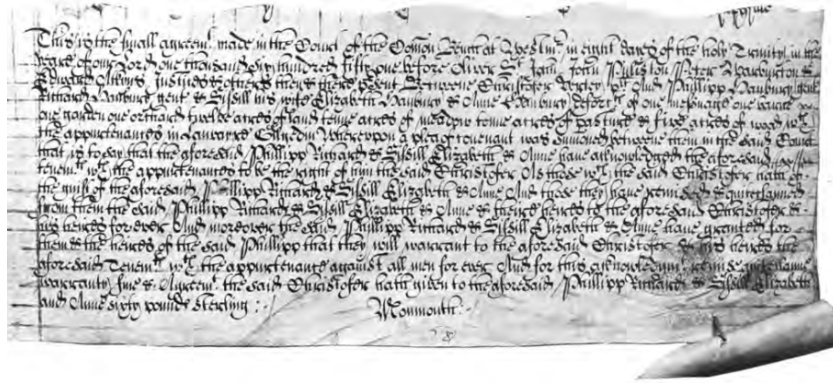 This is the finall agreemt made in the Court of the Comon Bench at Westmr in eight dayes of the holy Trinity in the
yeare of our Lord one thousand six hundred fifty one before Oliver St John John Puliston Peter Warburton &
Edward Atkyns Justices & others there then present Betweene Christofer plt And Phillipp Hanbury gent
Richard Hanbury gent & Sissill his wife Elizabeth Hanbury & Anne Hanbury deforcts of one messuage one barne
one garden one orchard twelve acres of land tenne acres of meadow tenne acres of pasture & five acres of wood wth
the appurtenances in Whereupon a plea of covenant was sumoned betweene them in the said Court
that is to say that the aforesaid Phillipp Richard & Sissill Elizabeth & Anne have acknowledged the aforesaid
tenemts wth the appurtenances to be the right of him the said Christofer As those wch the said Christofer hath of
the guift of the aforesaid Phillipp Richard & Sissill Elizabeth & Anne And those they have remised & quiteclaimed
from them the said Phillipp Richard & Sissill Elizabeth & Anne & theire heires to the aforesaid Christofer &
his heires for ever And moreover the said Phillipp Richard & Sissill Elizabeth & Anne have granted for
them & the heires of the said Phillipp that they will warrant to the aforesaid Christofer & his heires the
aforesaid Tenemts wth the appurtenances against all men for ever And for this acknowledgmt remise quiteclaime
warranty fine & Agreemt the said Christofer hath given to the aforesaid Phillipp Richard & Sissill Elizabeth
and Anne sixty pounds sterling
Monmouth